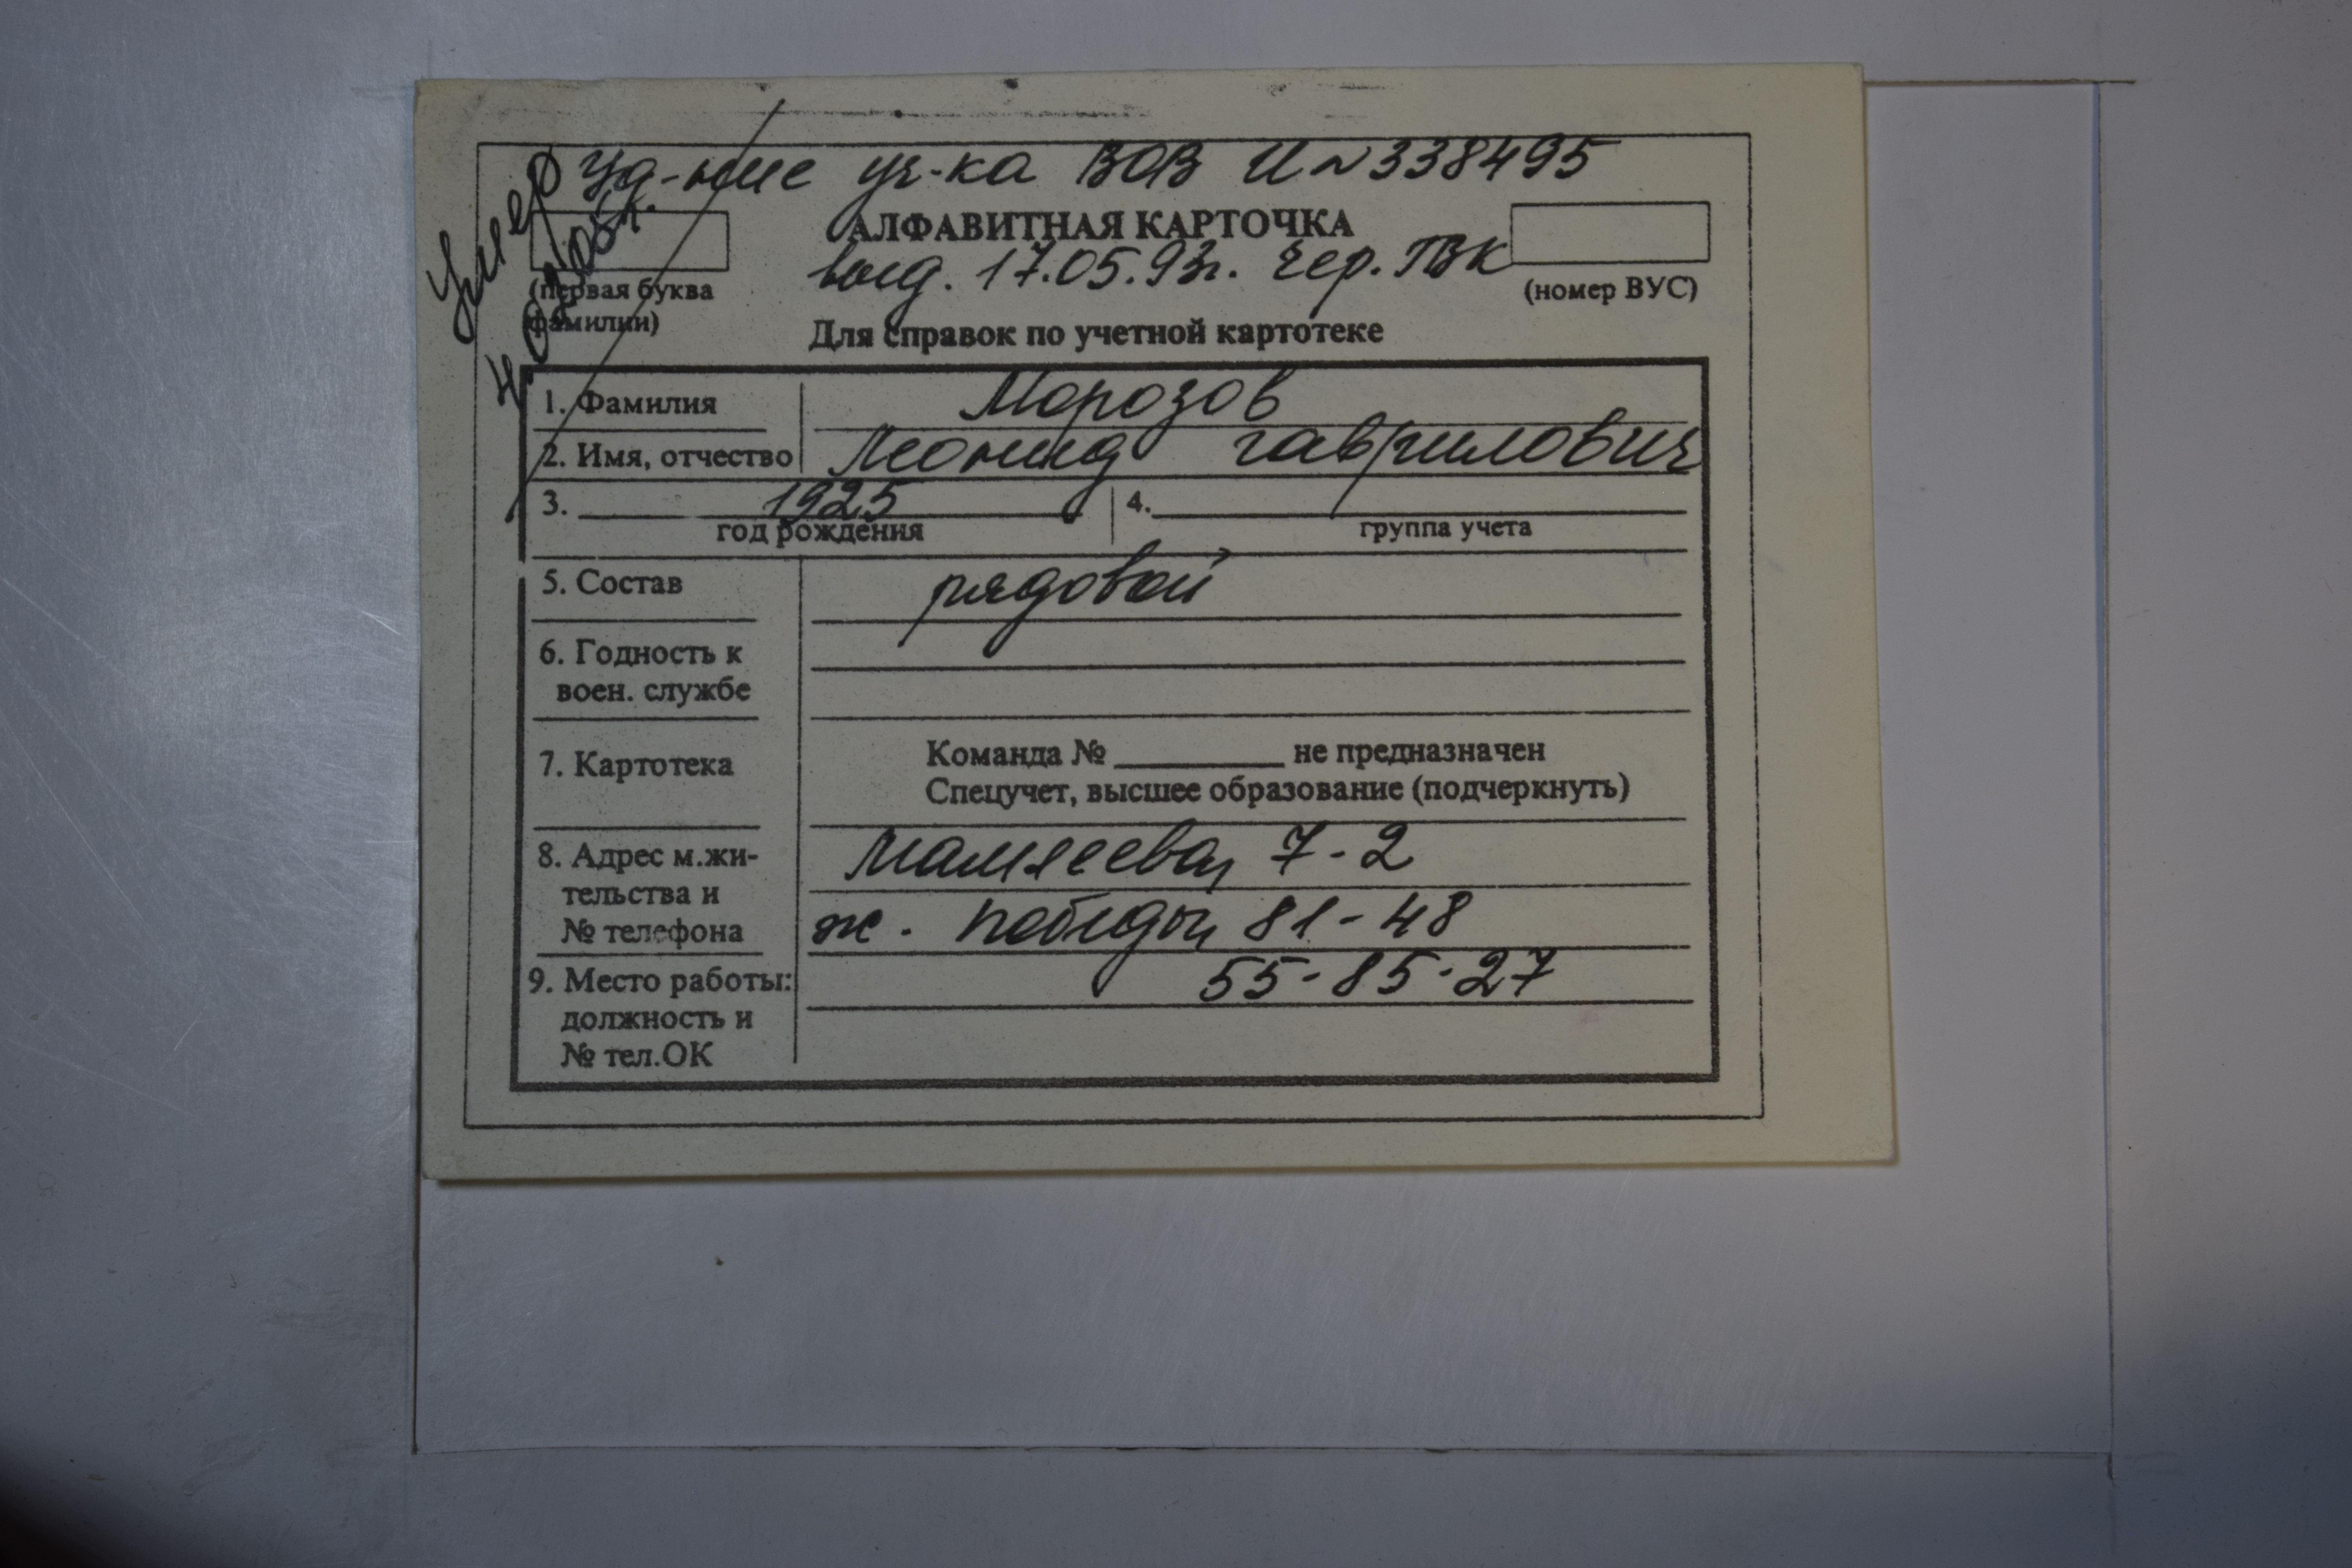 Умер
уд-ние уч-ка ВОВ И № 338495
АЛФАВИТНАЯ КАРТОЧКА
выд. 17.05.93г. Чер. ГВК
(первая буква
фамилии)
(номер ВУС)
Для справок по учетной картотеке
1. Фамилия Морозов
2. Имя, отчество Леонид Гаврилович
3. 1925 4.
год рождения группа учета
5. Состав рядовой
6. Годность к
воен. службе
7. Картотека
Команда № ______ не предназначен
Спецучет, высшее образование (подчеркнуть)
8. Адрес м.жи-
тельства и
№ телефона
Мамлеева, 7-2
ж. Победы, 81-48
55-85-27
9. Место работы:
должность и
№ тел.ОК